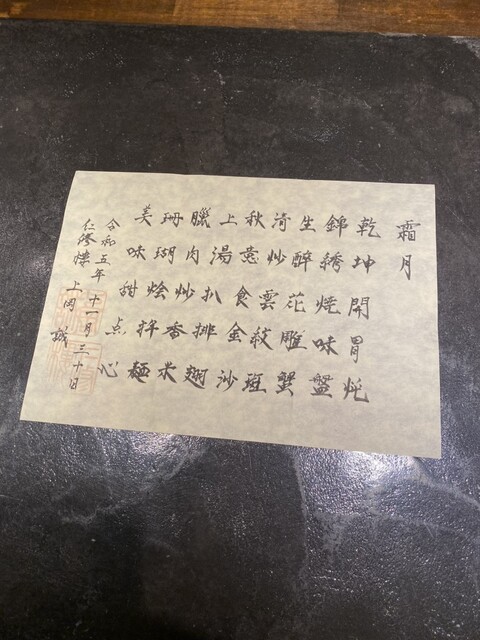 霜月
乾坤開胃炖
錦綉焼味盤
生醉花雕蟹
清炒雲紋斑
秋意食金沙
上湯扒排翅
臘肉炒香米
珊瑚燴拌麺
美味甜点心
令和五年 十一月三十日
仁修樓 上岡 誠